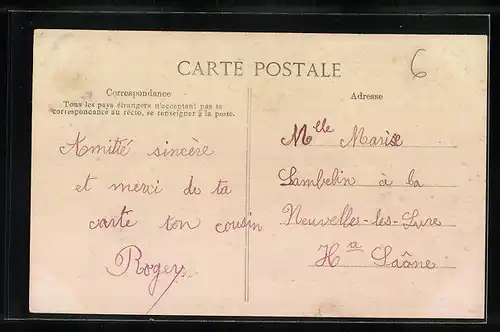 CARTE POSTALE
6
Correspondance
Tous les pays étrangers n'acceptant pas la
correspondance au recto, se renseigner à la poste.
Amitié sincère
et merci de ta
carte ton cousin
Roger
Adresse
Mlle Marise
Lambelin à la
Neuvelles-les-Lure
Hte Saône